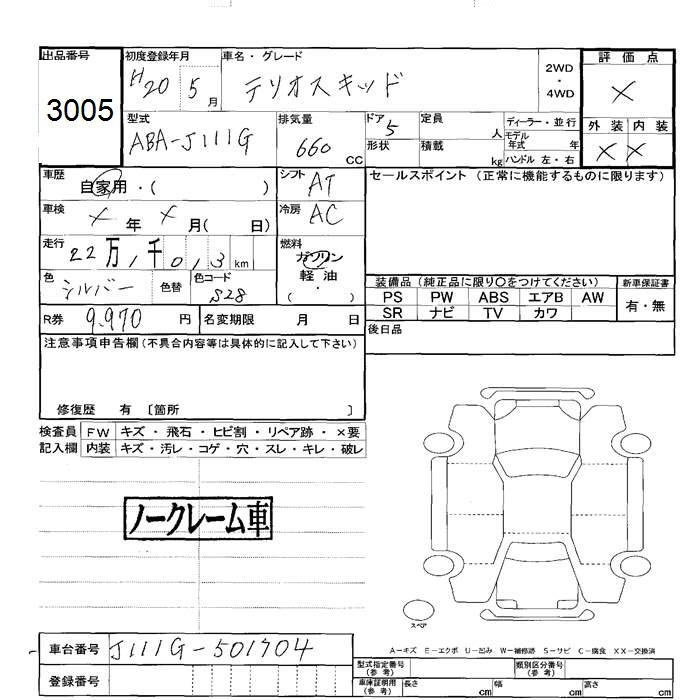 出品番号 初度登録年月 車名・グレード 2WD・4WD 評価点
3005 H20 5月 テリオスキッド ×
型式 排気量 ドア 定員 ディーラー・並行 外装 内装
ABA-J111G 660 CC 5 人 モデル年式 年 × ×
形状 積載 kg ハンドル 左・右
車歴 自家用・( ) シフト AT セールスポイント (正常に機能するものに限ります)
車検 × 年 × 月( 日) 冷房 AC
走行 22万,1千0,3 km 燃料 ガソリン
色 シルバー 色替 色コード S28 軽油・( )
装備品 (純正品に限り○をつけてください) 新車保証書
PS PW ABS エアB AW 有・無
SR ナビ TV カワ
R券 9,970 円 名変期限 月 日
後日品
注意事項申告欄 (不具合内容等は具体的に記入して下さい)
修復歴 有 〔箇所 〕
検査員 FW キズ・飛石・ヒビ割・リペア跡・×要
記入欄 内装 キズ・汚レ・コゲ・穴・スレ・キレ・破レ
ノークレーム車
スペア
A-キズ E-エクボ U-凹み W-補修跡 S-サビ C-腐食 XX-交換済
車台番号 J111G-501704
型式指定番号(参考) 類別区分番号(参考)
登録番号
車庫証明用(参考) 長さ cm 幅 cm 高さ cm